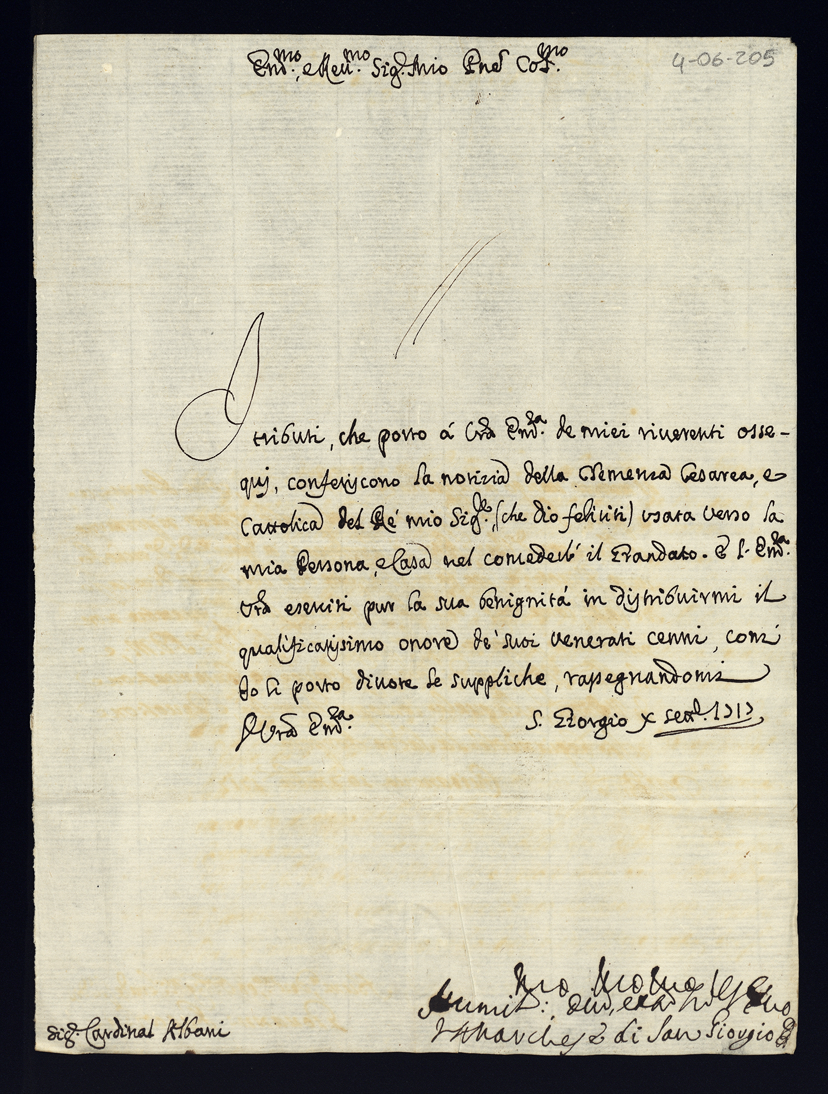 Em.mo, e Reu.mo Sig.r Mio Pnē Co.mo
4-06-205
I tributi, che porto á Vrā Em.za de miei riuerenti osse-
quj, conferiscono la notizia della Clemenza Cesarea, e
Cattolica del Ré mio Sig.re, (che dio feliciti) usata verso la
mia Persona, e Casa nel concederle il Grandato. E l' Em.za
Vrā eserciti pur la sua benignitá in distribuirmi il
qualificatissimo onore de' suoi venerati cenni, come
io li porto diuote le suppliche, rassegnandomi
Di Vrā Em.za
S. Giorgio X Sett.
Sig.r Cardinal Albani
Humil.mo, diu.mo
Il Marchese di San Giorgio